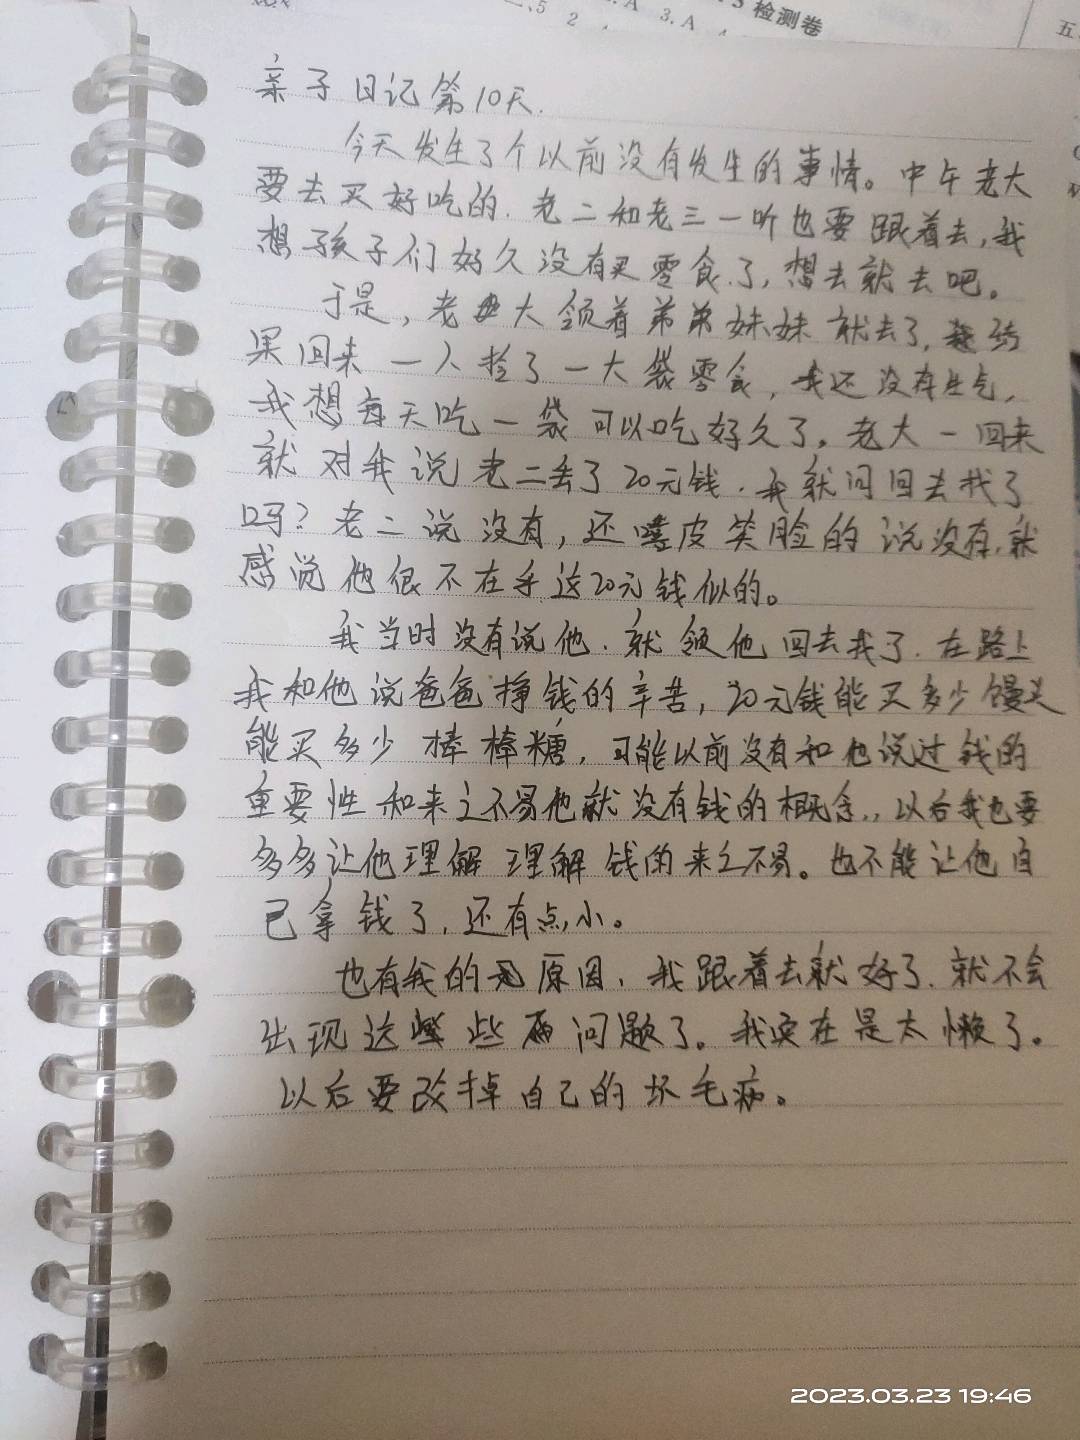 检测卷
3.A
亲子日记第10天.
今天发生了个以前没有发生的事情。中午老大
要去买好吃的.老二和老三一听也要跟着去,我
想孩子们好久没有买零食了,想去就去吧。
于是,老大领着弟弟妹妹就去了,结
果回来一人拎了一大袋零食,我还没有生气,
我想每天吃一袋可以吃好久了。老大一回来
就对我说老二丢了20元钱.我就问回去找了
吗?老二说没有,还嘻皮笑脸的说没有,就
感觉他很不在乎这20元钱似的。
我当时没有说他.就领他回去找了.在路上
我和他说爸爸挣钱的辛苦,20元钱能买多少馒头
能买多少棒棒糖,可能以前没有和他说过钱的
重要性和来之不易他就没有钱的概念.,以后我也要
多多让他理解理解钱的来之不易。也不能让他自
己拿钱了,还有点小。
也有我的原因,我跟着去就好了.就不会
出现这些问题了。我实在是太懒了。
以后要改掉自己的坏毛病。
2023.03.23 19:46